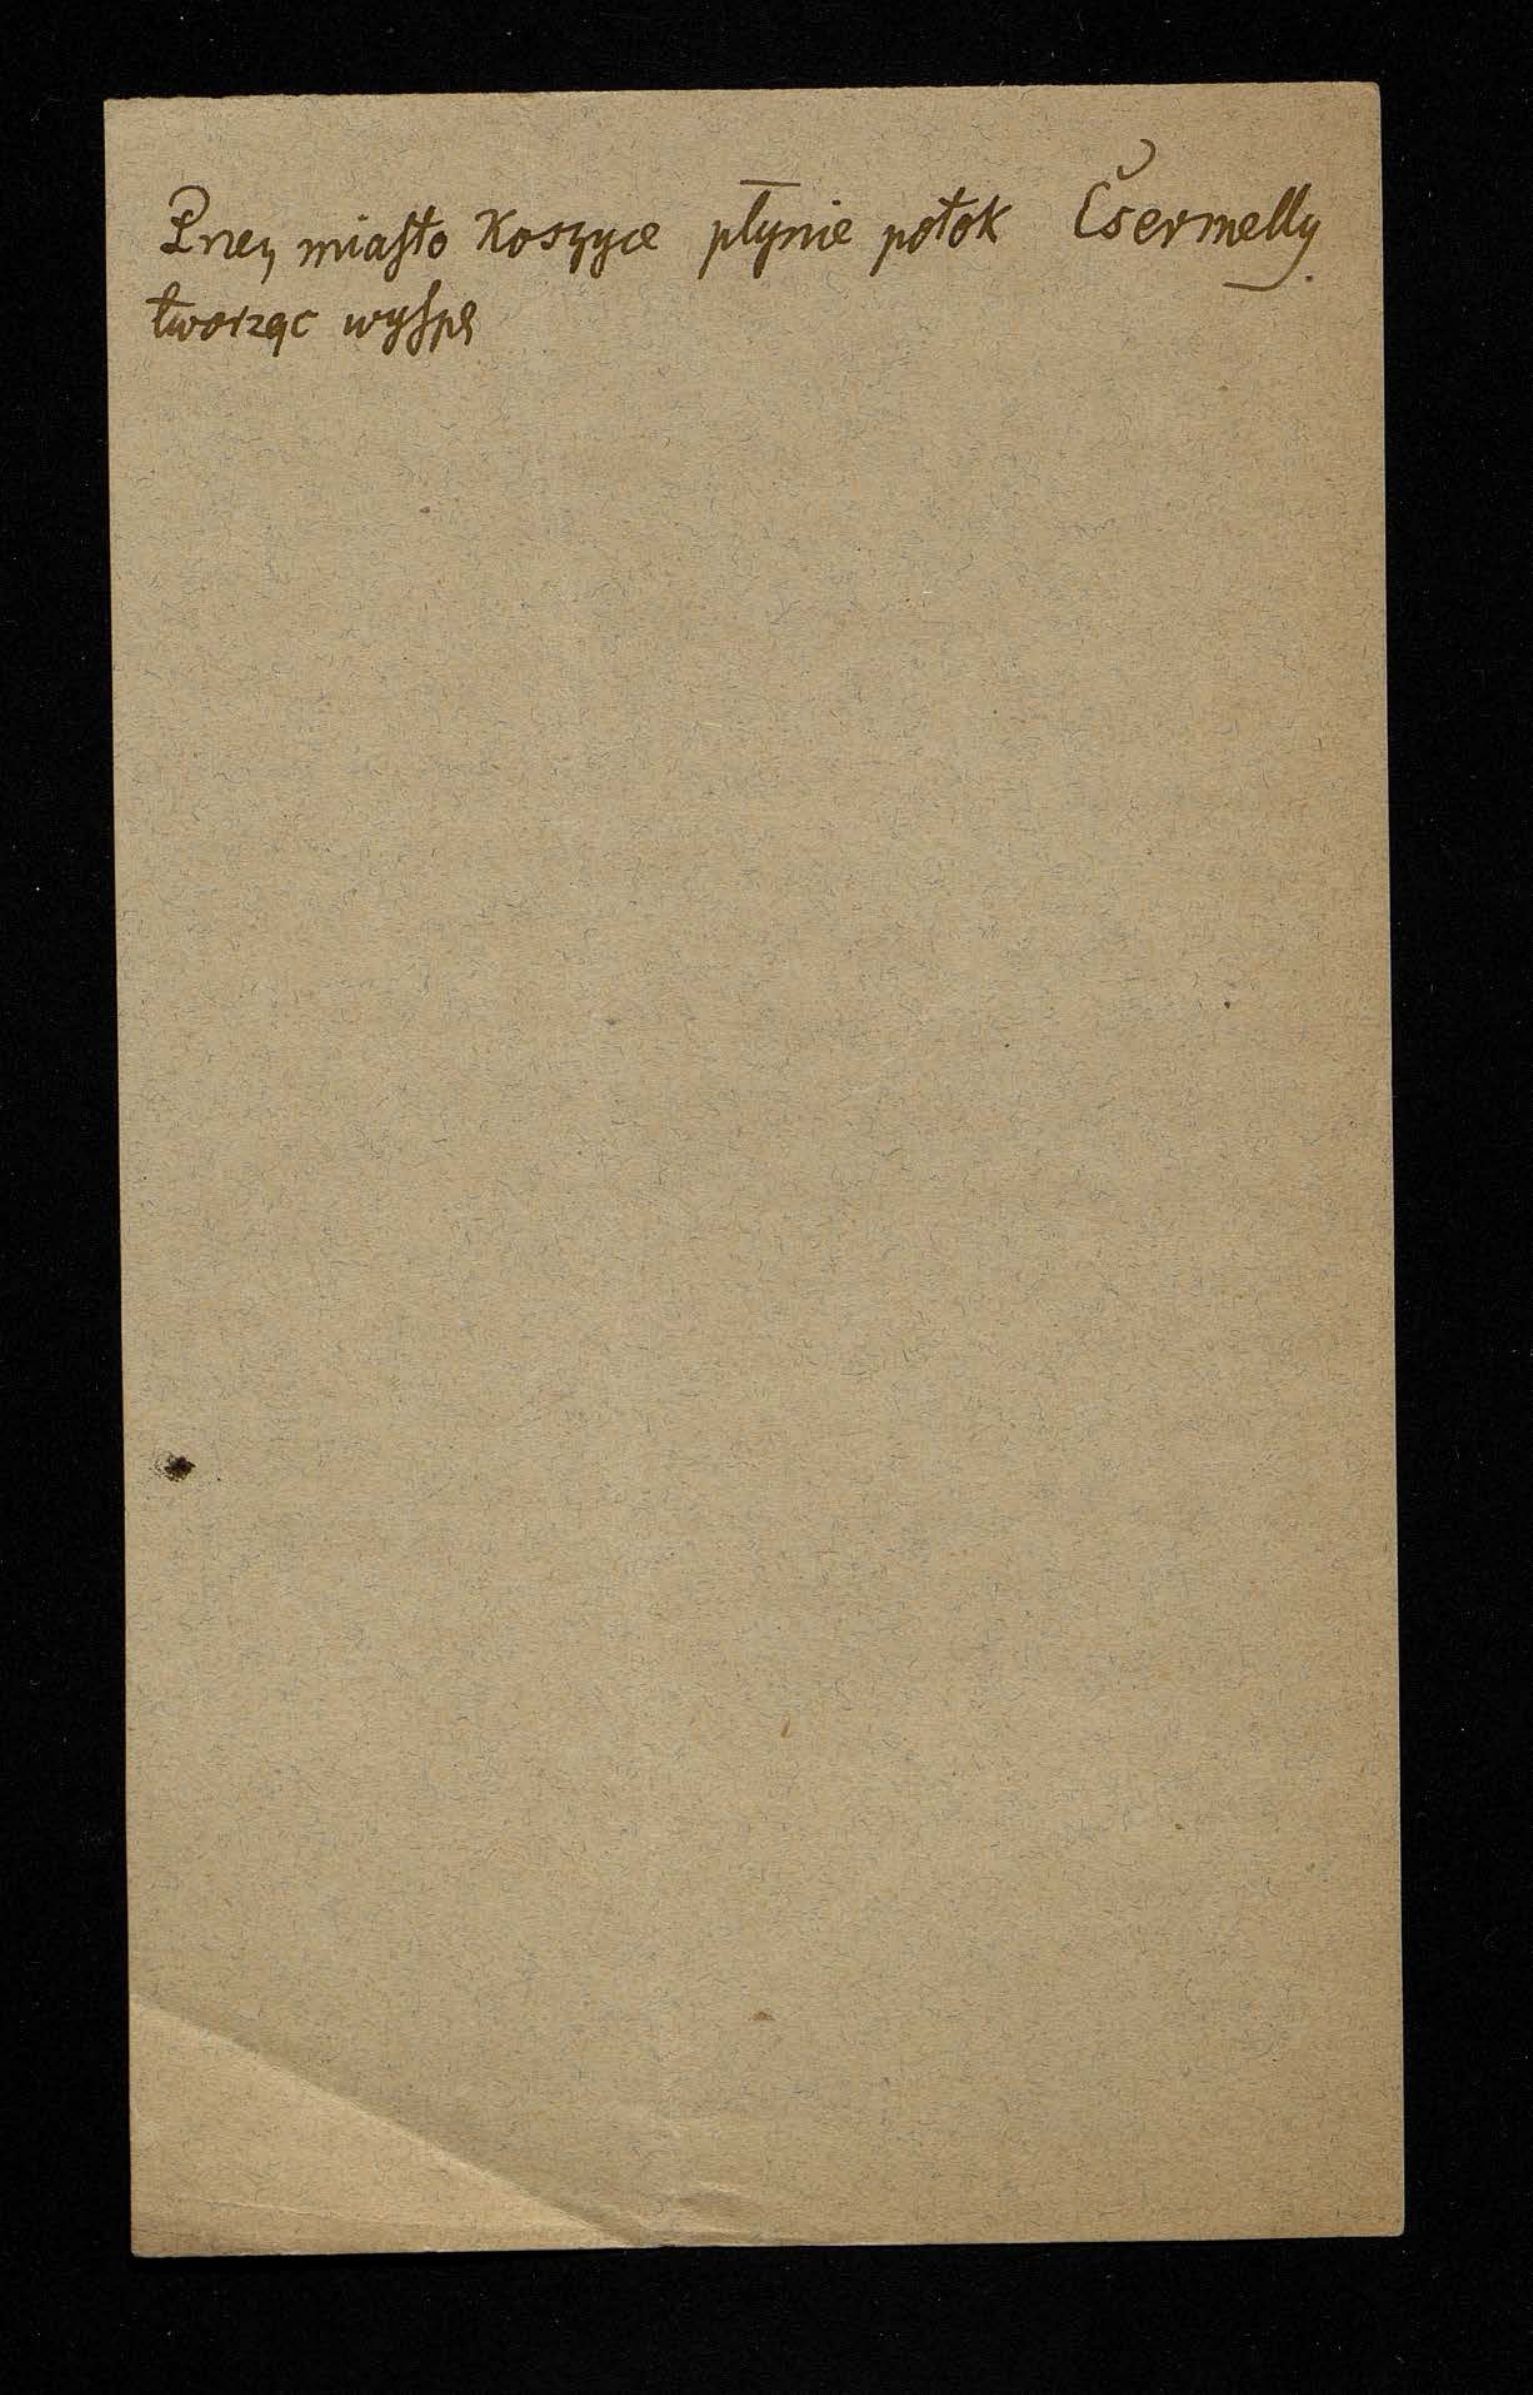 Przez miasto Koszyce płynie potok Čsermelly
tworząc wyspę